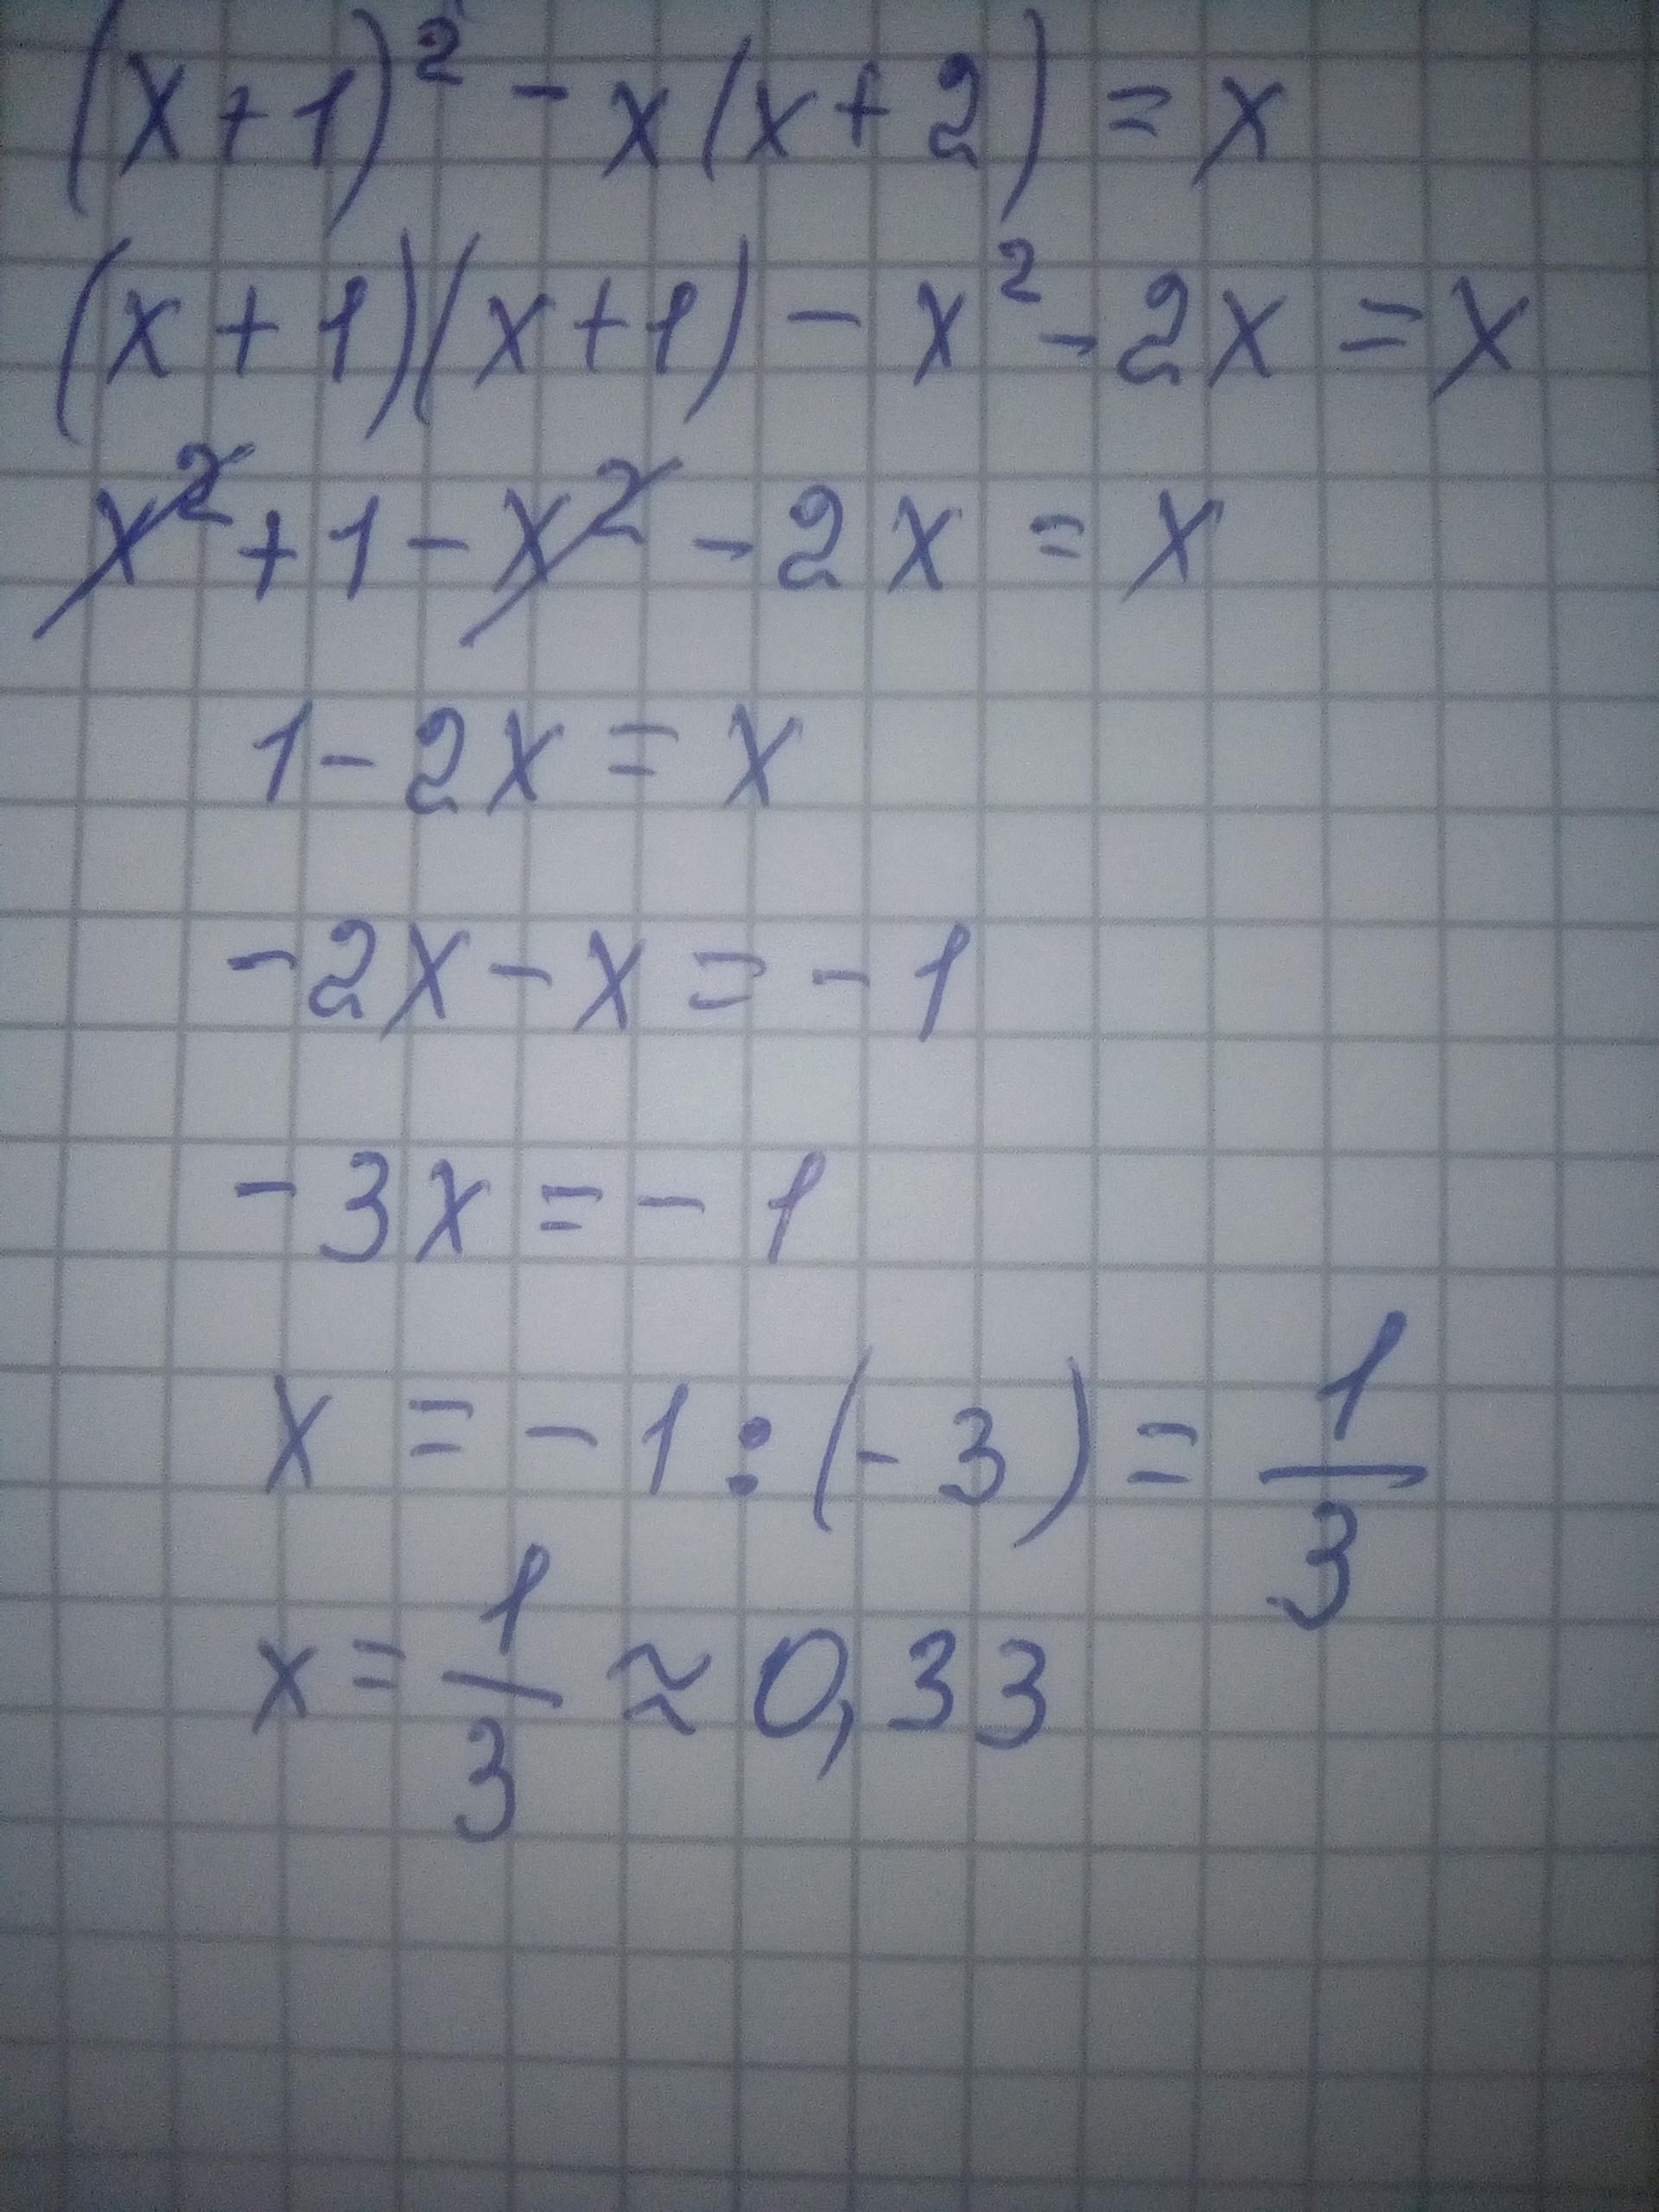 (x+1)² - x(x+2) = x
(x+1)(x+1) - x² - 2x = x
x² + 1 - x² - 2x = x
1 - 2x = x
-2x - x = -1
-3x = -1
x = -1 : (-3) = 1/3
x = 1/3 ≈ 0,33